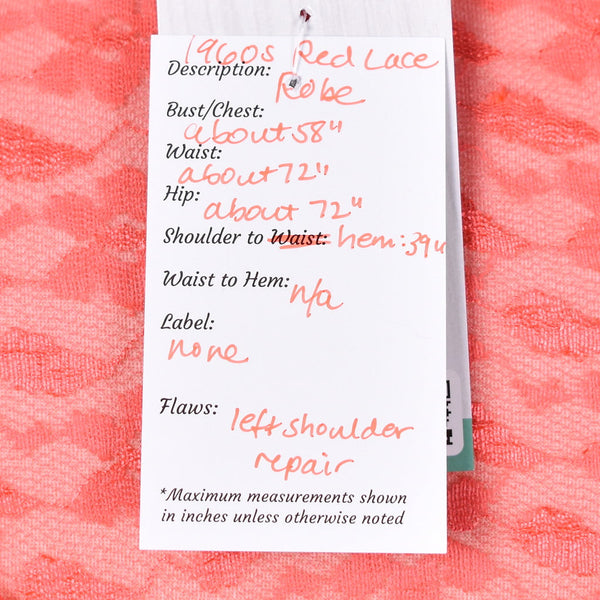 1960s Red Lace
Description: Robe
Bust/Chest:
about 58"
Waist:
about 72"
Hip:
about 72"
Shoulder to Waist: hem: 39"
Waist to Hem: n/a
Label:
none
Flaws: left shoulder
repair
*Maximum measurements shown
in inches unless otherwise noted